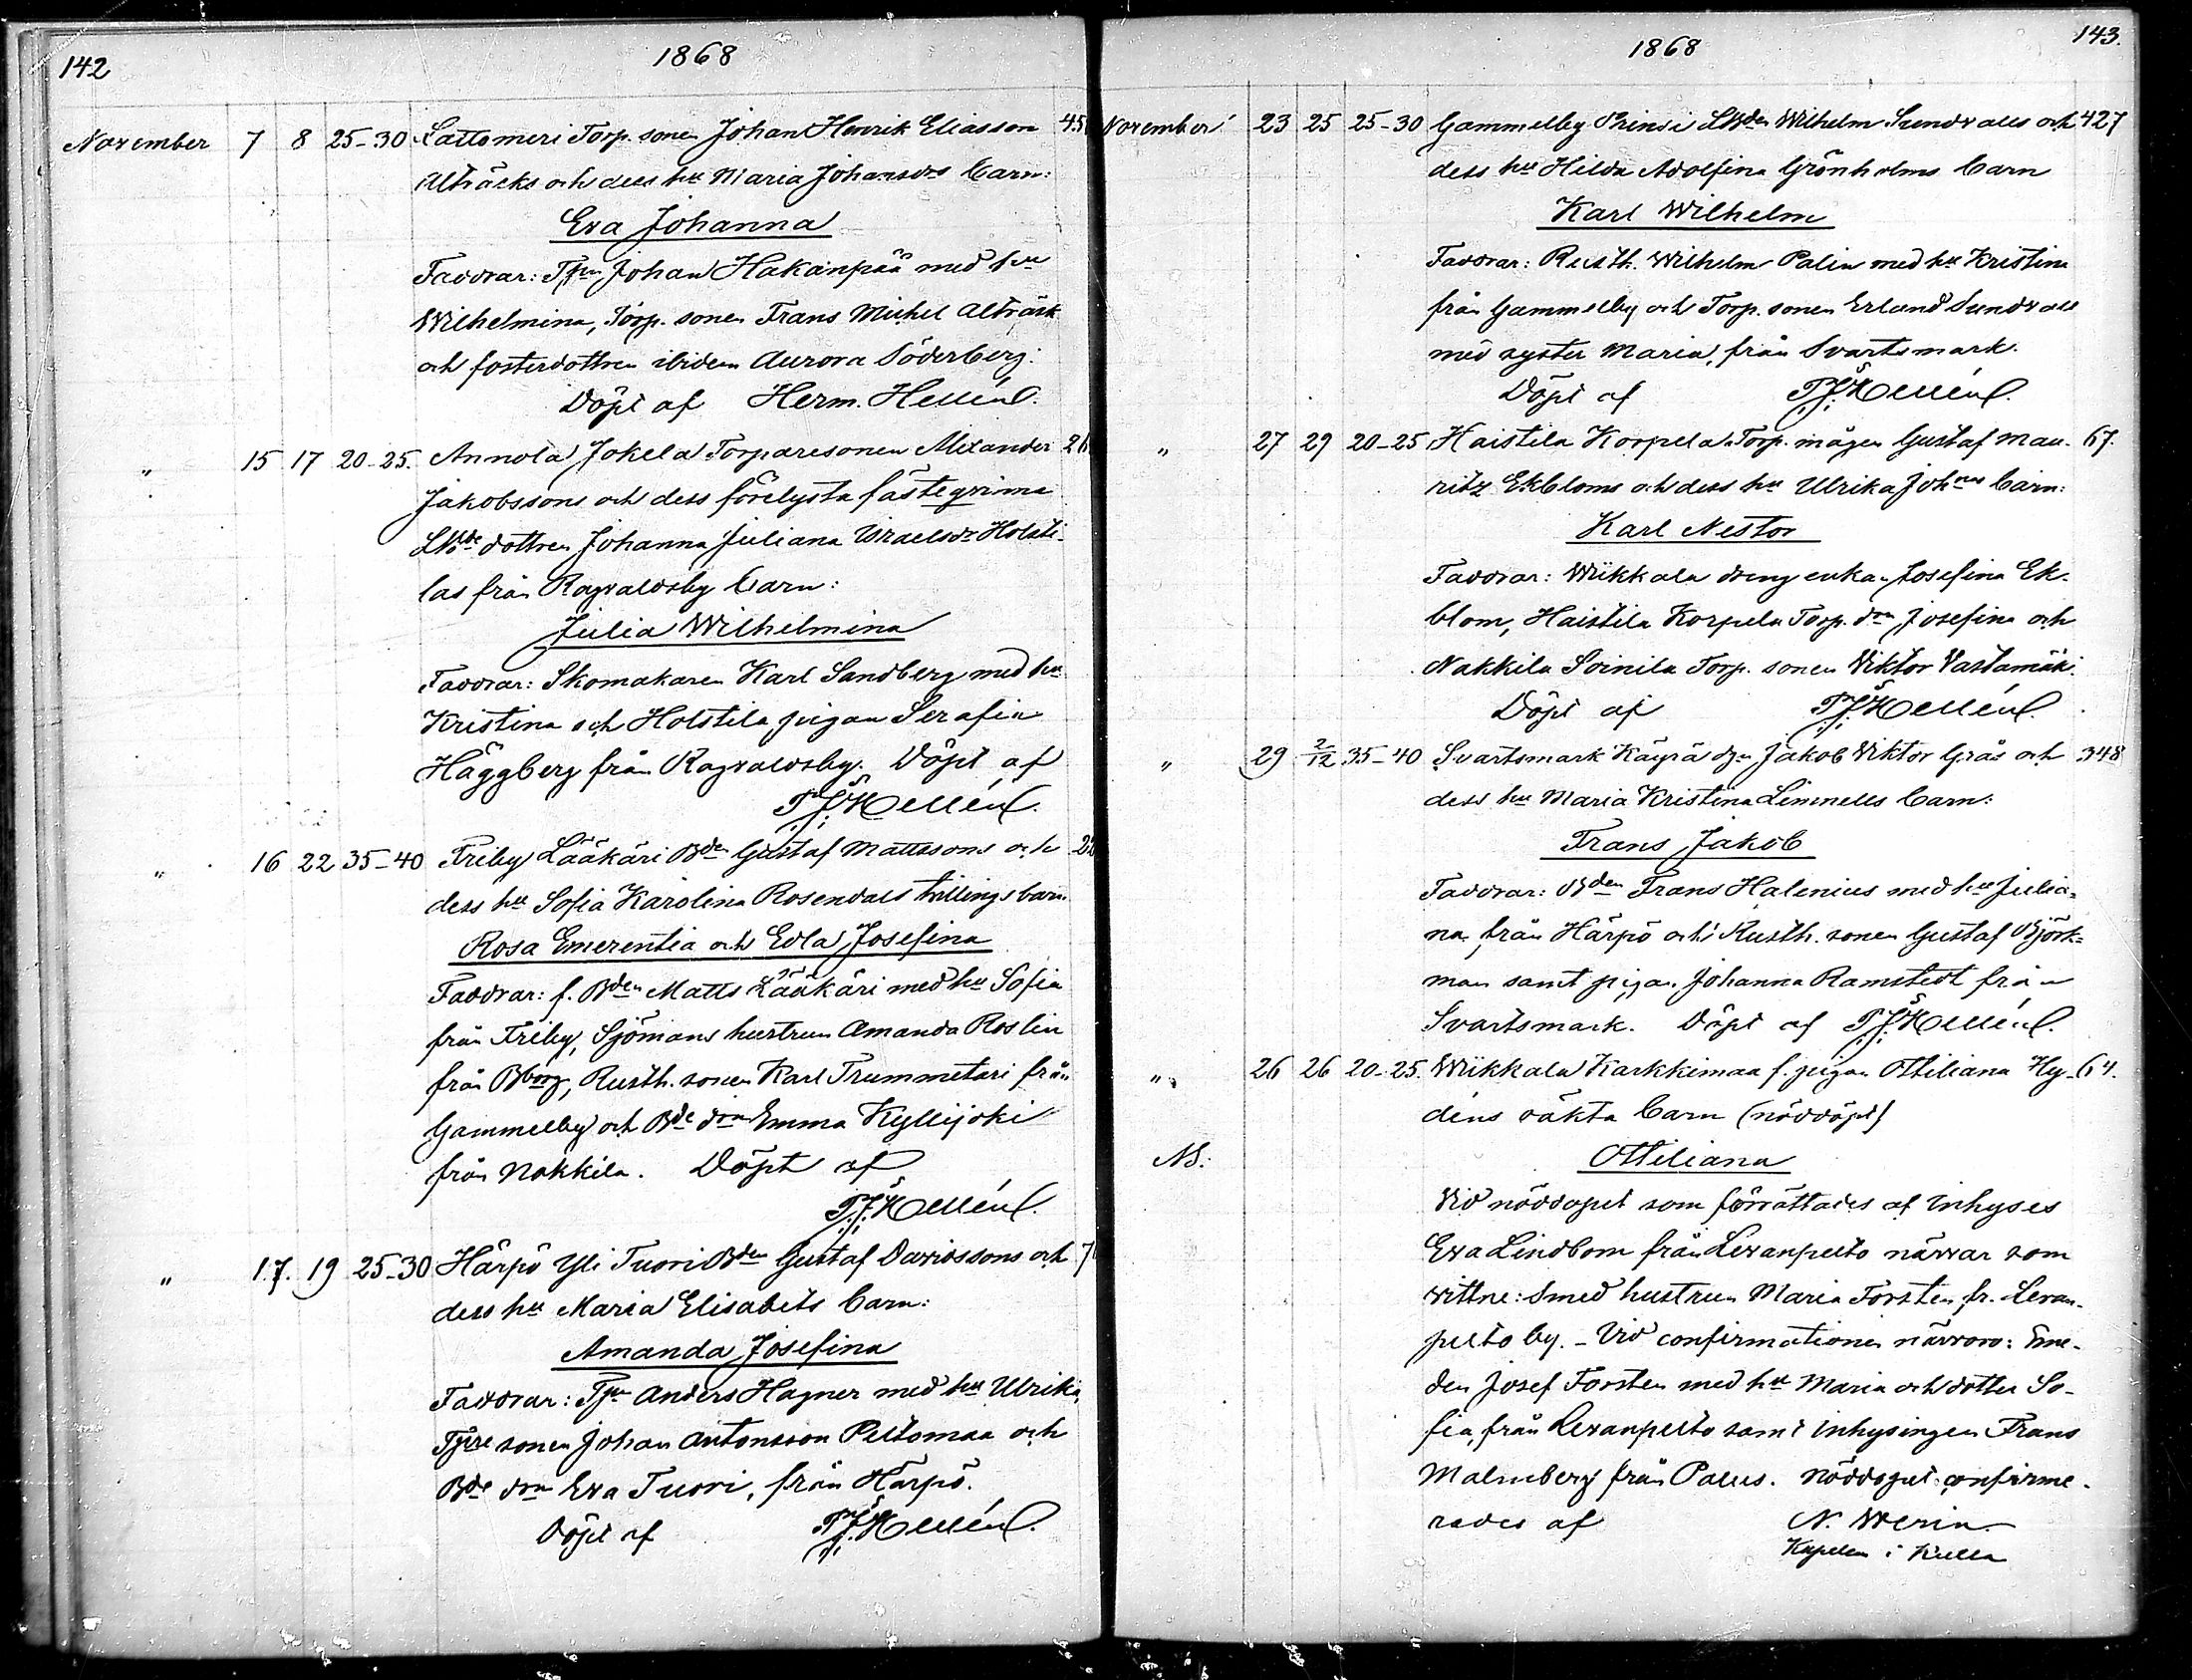 142
1868
November 7 8 25-30 Lattomeri Torp. sonen Johan Henrik Eliasson 45
Alträsks och dess hu Maria Johansdrs barn:
Eva Johanna
Faddrar: Tpn Johan Hakanpää med hu
Wilhelmina, Torp. sonen Frans Mickel Alträsk
och fosterdottren ibidem Aurora Söderberg:
Döpt af Herm. Hellén.
" 15 17 20-25. Annola Jokela Torparesonen Alexander 26
Jakobssons och dess förelysta fästeqvinna
dottren Johanna Juliana Israelsdr Holsti-
las från Ragvaldsby barn:
Julia Wilhelmina
Faddrar: Skomakaren Karl Sandberg med hu
Kristina och Holstila pigan Serafia
Häggberg från Ragvaldsby. Döpt af
Hellén.
" 16 22 35-40 Friby Lääkäri Bden Gustaf Mattssons och
dess hu Sofia Karolina Rosendals tvillingsbarn
Rosa Emerentia och Edla Josefina
Faddrar: f. Bden Matts Lääkäri med hu Sofia
från Friby, Sjömans hustrun Amanda Roslin
från Bborg, Rusth. sonen Karl Trummetari från
Gammelby och Bde drn Emma Kyllijoki
från Nakkila. Döpt af
Hellén.
" 17. 19 25-30 Härpö Yli Tuori Bden Gustaf Davidssons och 7
dess hu Maria Elisabets barn:
Amanda Josefina
Faddrar: Tpn Anders Hagner med hu Ulrika,
Tpre sonen Johan Antonsson Peltomaa och
Bde drn Eva Tuori, från Härpö.
Döpt af Hellén.
143.
1868
November 23 25 25-30 Gammelby Prinsi Wilhelm Sundvalls och 427
dess hu Hilda Adolfina Grönholms barn
Karl Wilhelm
Faddrar: Rusth. Wilhelm Palin med hu Kristina
från Gammelby och Torp. sonen Erland Sundvall
med syster Maria, från Svartsmark.
Döpt af Hellén.
" 27 29 20-25 Haistila Korpela Torp. mågen Gustaf Mau- 67.
ritz Ekbloms och dess hu Ulrika Johns barn:
Karl Nestor
Faddrar: Wiikkala dreng enkan Josefina Ek-
blom, Haistila Korpela Torp. drn Josefina och
Nakkila Soinila Torp. sonen Viktor Vastamäki.
Döpt af Hellén.
" 29 2/12 35-40 Svartsmark Käyrä dgn Jakob Viktor Gräs och 348
dess hu Maria Kristina Limnells barn:
Frans Jakob
Faddrar: Bden Frans Halenius med hu Julia-
na från Härpö och Rusth. sonen Gustaf Björk-
man samt pigan Johanna Ramstedt från
Svartsmark. Döpt af Hellén.
" 26 26 20-25. Wiikkala Karkkimaa f. pigan Ottiliana Hy- 64.
déns oäkta barn (nöddöpt)
NB: Ottiliana
Vid nöddopet som förrättades af inhyses
Eva Lindbom från Levanpelto närvar som
vittne: Smed hustrun Maria Forstén fr. Levan-
pelto by. - Vid confirmationen närvoro: Sme-
den Josef Forstén med hu Maria och dotter So-
fia, från Levanpelto samt inhysingen Frans
Malmberg från Palus. Nöddopet confirme-
rades af N. Werin.
Kapellan i Kulla